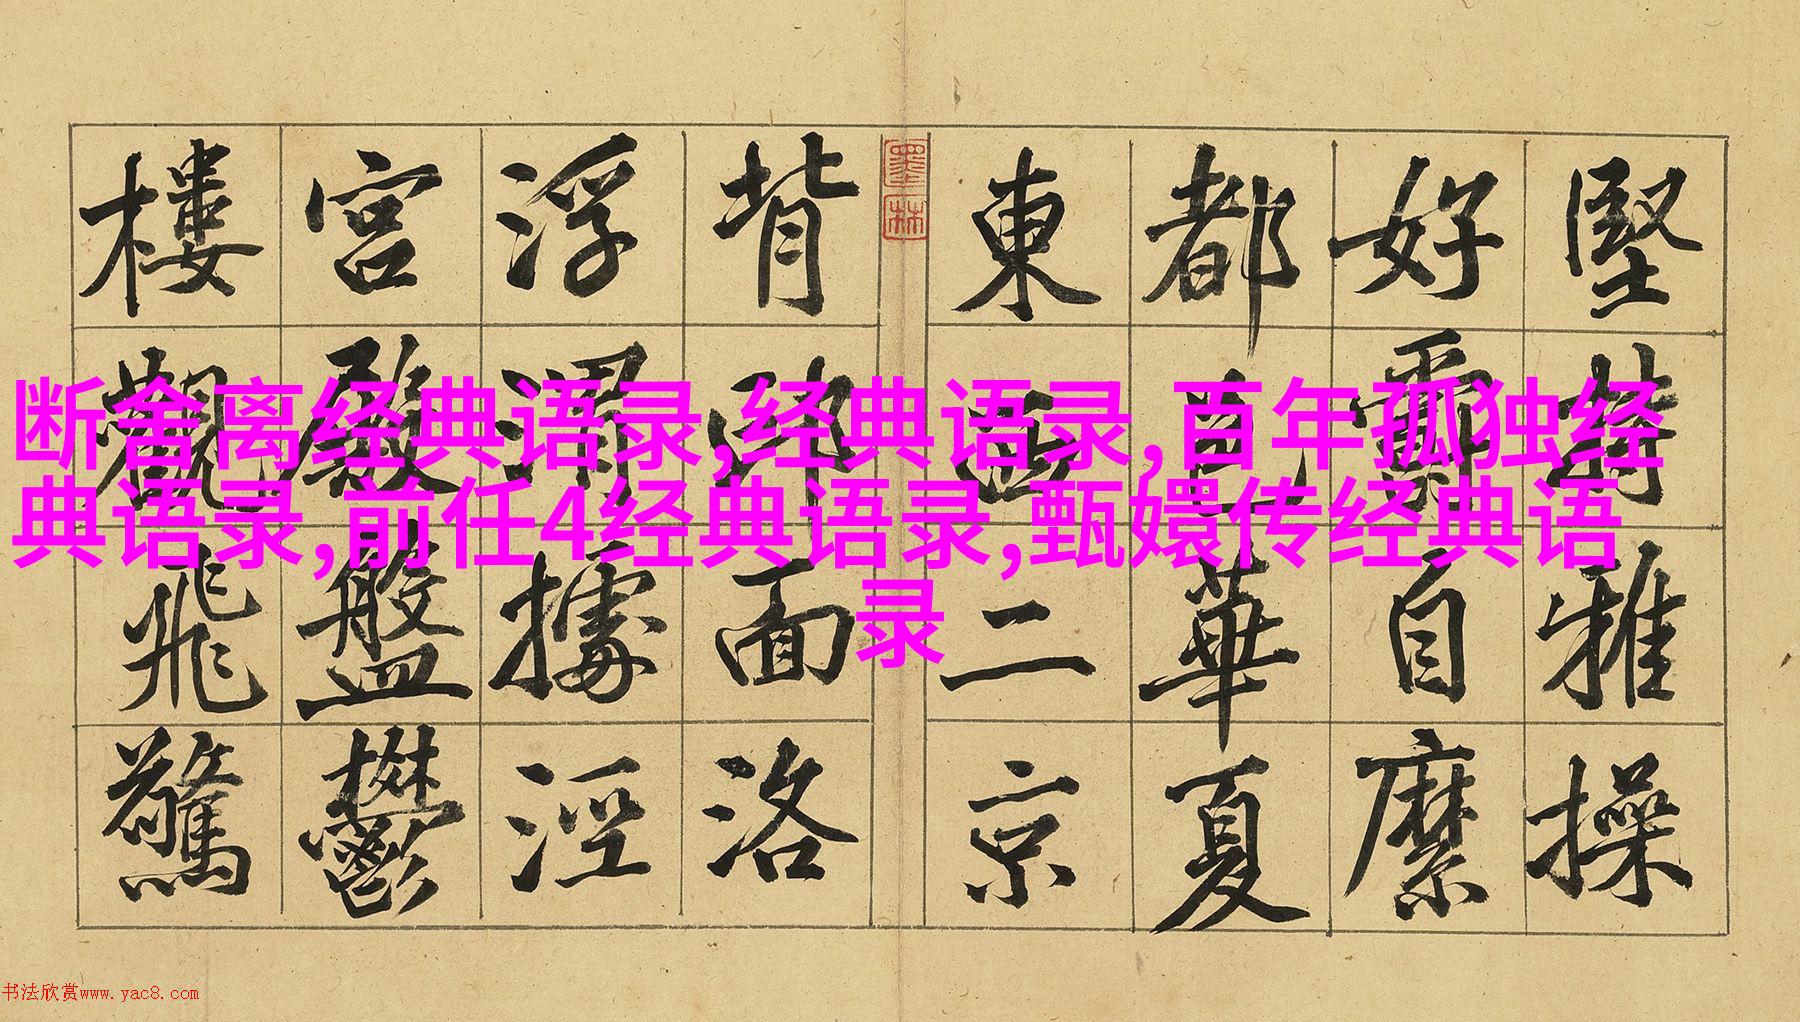 堅持雅操
好爵自縻
都邑華夏
東西二京
墨林
背邙面洛
浮渭據涇
宮殿盤鬱
樓觀飛驚
断舍离经典语录,经典语录,百年孤独经
典语录,前任4经典语录,甄嬛传经典语
录
书法欣赏www.yac8.com